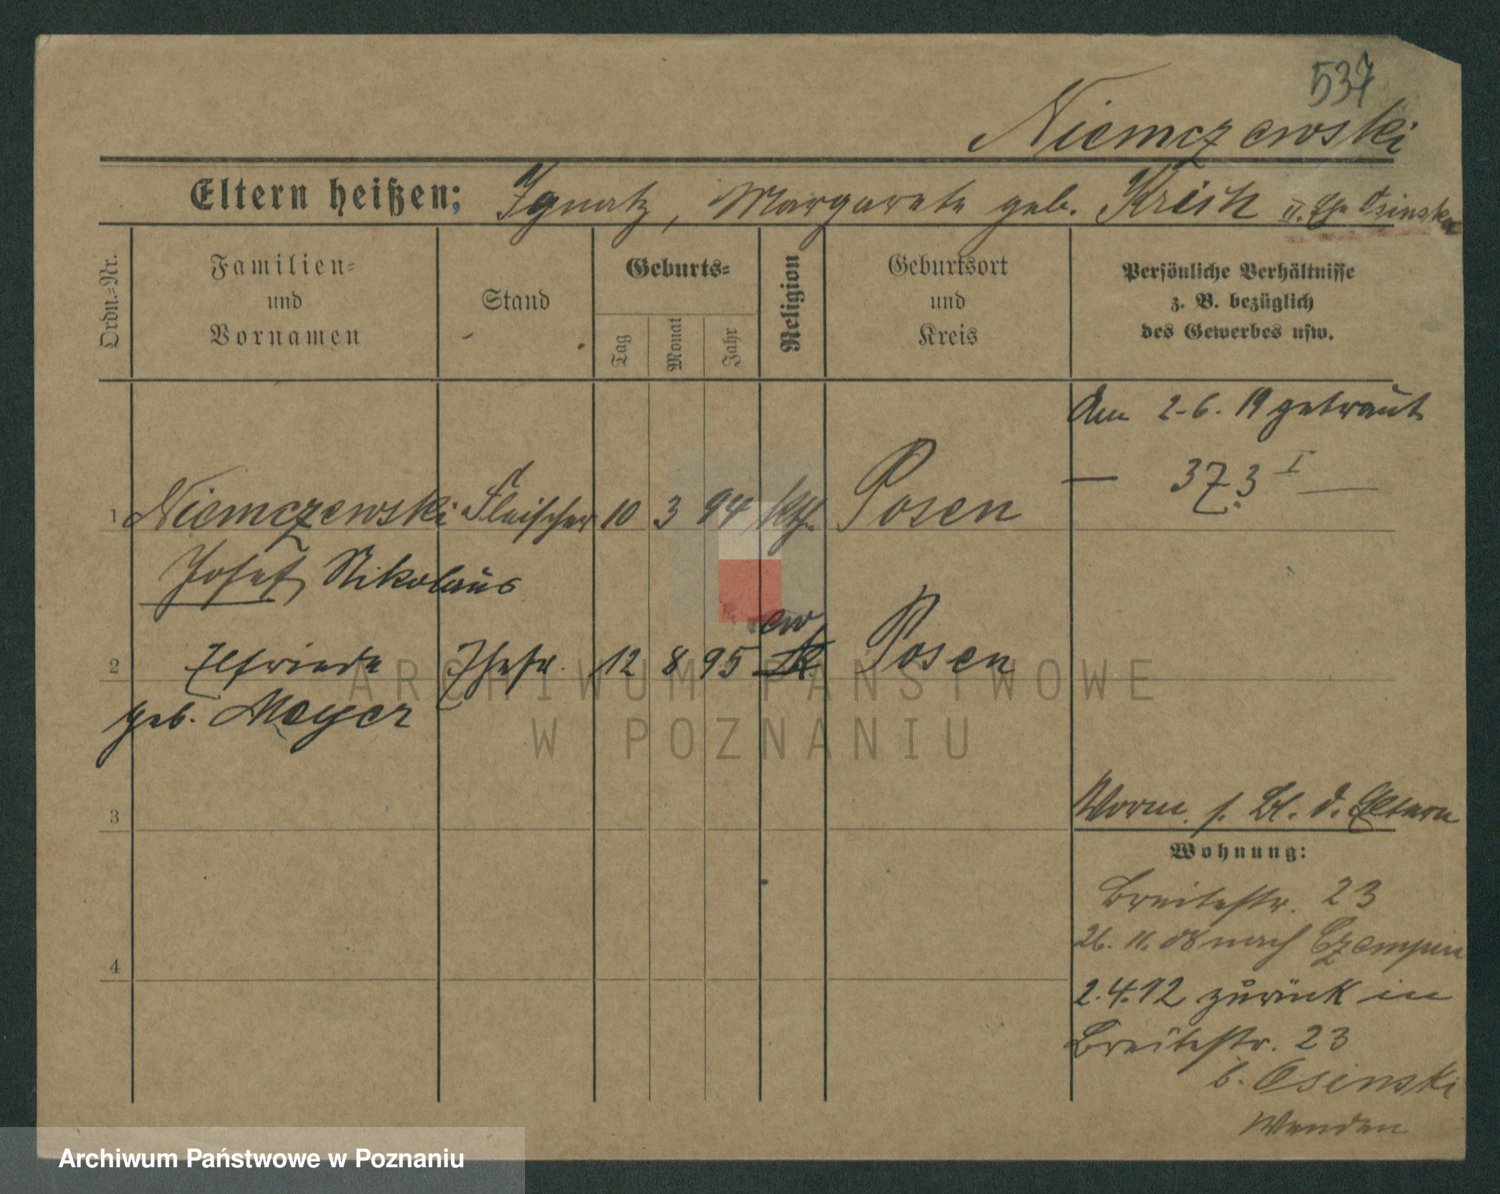 537
Niemczewski
Eltern heißen: Ignatz, Margarete geb. Krisch II. Ehe Osinska
Ordn.-Nr.
Familien-
und
Vornamen
Stand
Geburts-
Tag
Monat
Jahr
Religion
Geburtsort
und
Kreis
Persönliche Verhältnisse
z. B. bezüglich
des Gewerbes usw.
Am 2-6. 19 getraut
— 373 I —
1 Niemczewski Fleischer 10 3 94 kth. Posen
Josef, Nikolaus
ev
2 Elfriede Ehefr. 12 8 95 k. Posen
geb. Meyer
3
4
Vorm. s. Bl. d. Eltern
Wohnung:
Breitestr. 23
26. 11. 08 nach Czempin
2.4.12 zurück in
Breitestr. 23
b. Osinski
Wenden
ARCHIWUM PAŃSTWOWE
W POZNANIU
Archiwum Państwowe w Poznaniu